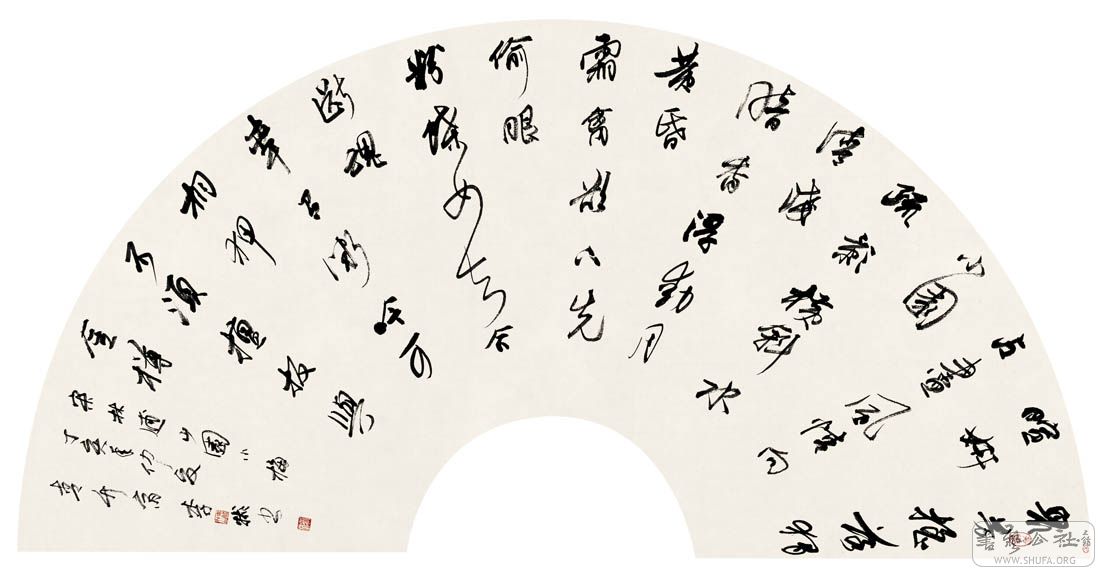 眾芳摇落獨
暄妍
占盡風情向
小園
疏影橫斜水
清淺
暗香浮動月
黄昏
霜禽欲下先
偷眼
粉蝶如知合
斷魂
幸有微吟可
相狎
不須檀板與
金樽
宋林逋山園小梅
丁亥年仲夏
齋 然書
書法公社
WWW.SHUFA.ORG